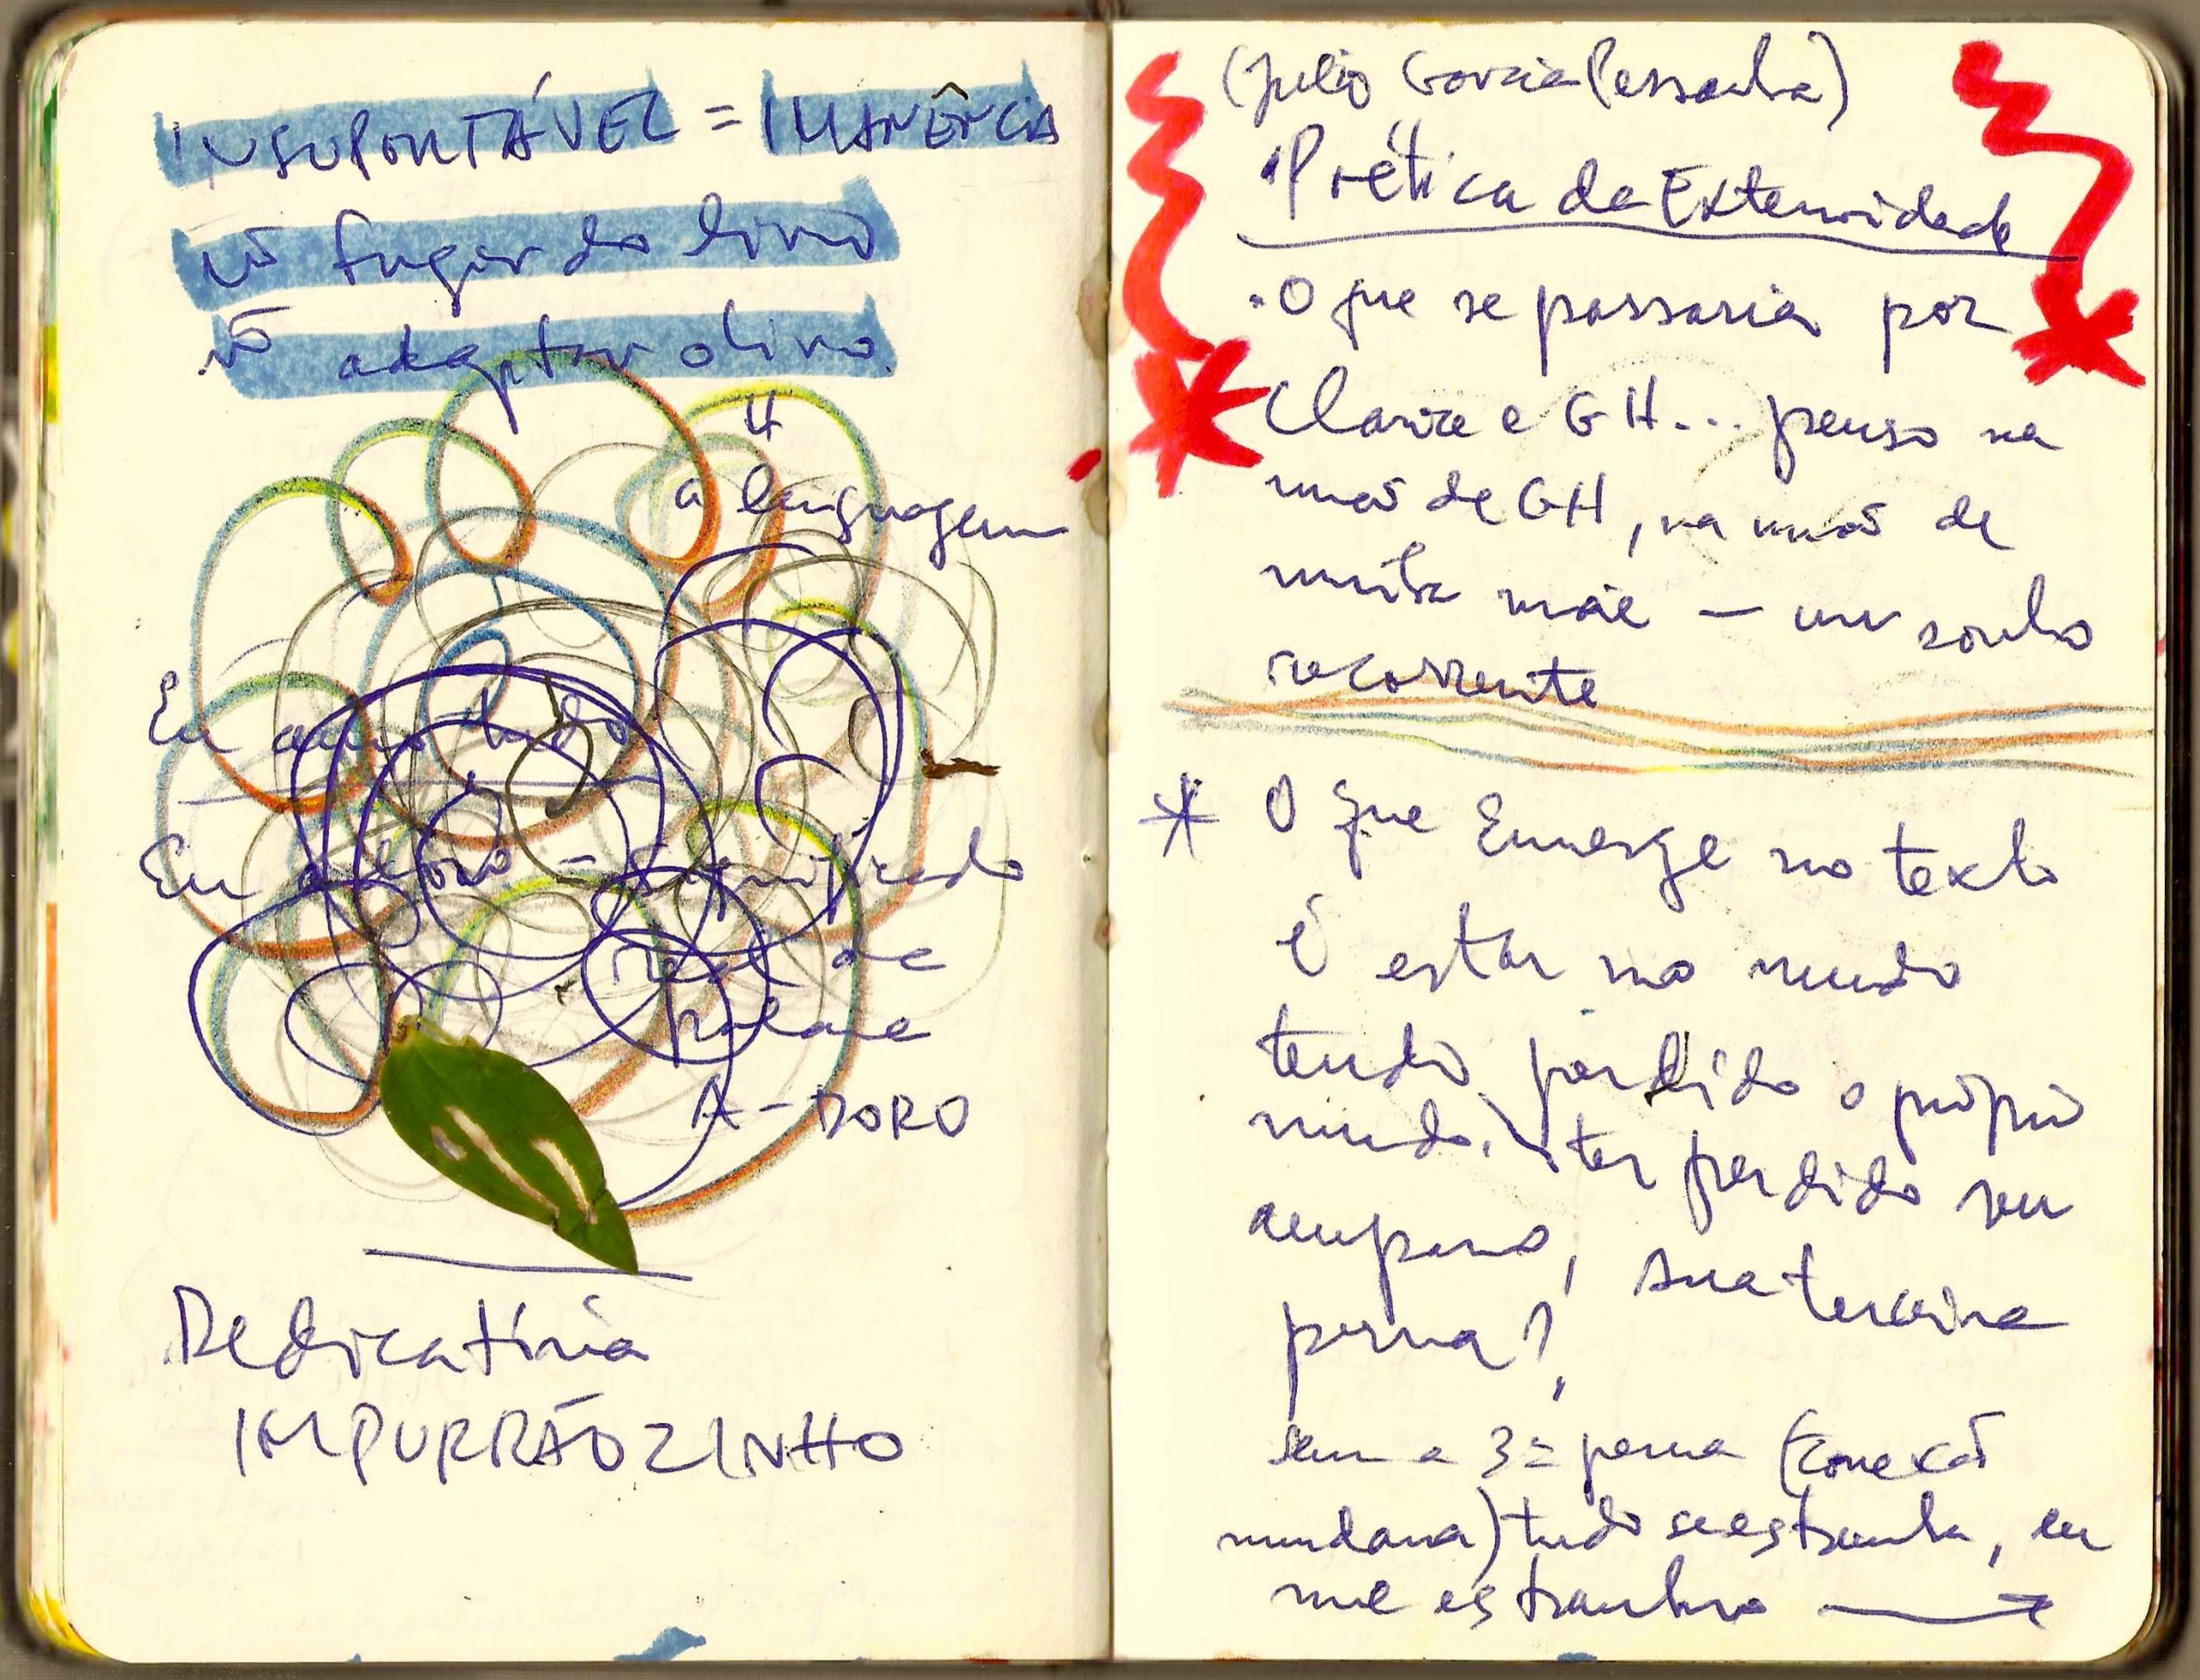 INSUPORTÁVEL = IMANÊNCIA
ñ fugir do livro
ñ adaptar o livro.
a linguagem
Eu amo tudo
Eu adoro = significado
real de
palavra
A-DORO
Dedicatória
IMPURRÃOZINHO
(Julio Garcia Pessanha)
"Poética da Exterioridade
. O que se passaria por
Clarice e GH... penso na
mão de GH, na mão de
minha mãe — um sonho
recorrente
* O que Emerge no texto
é estar no mundo
tendo perdido o próprio
mundo. \ ter perdido seu
amparo, sua terceira
perna?,
sem a 3ª perna (conexão
mundana) tudo se estranha, eu
me estranho →